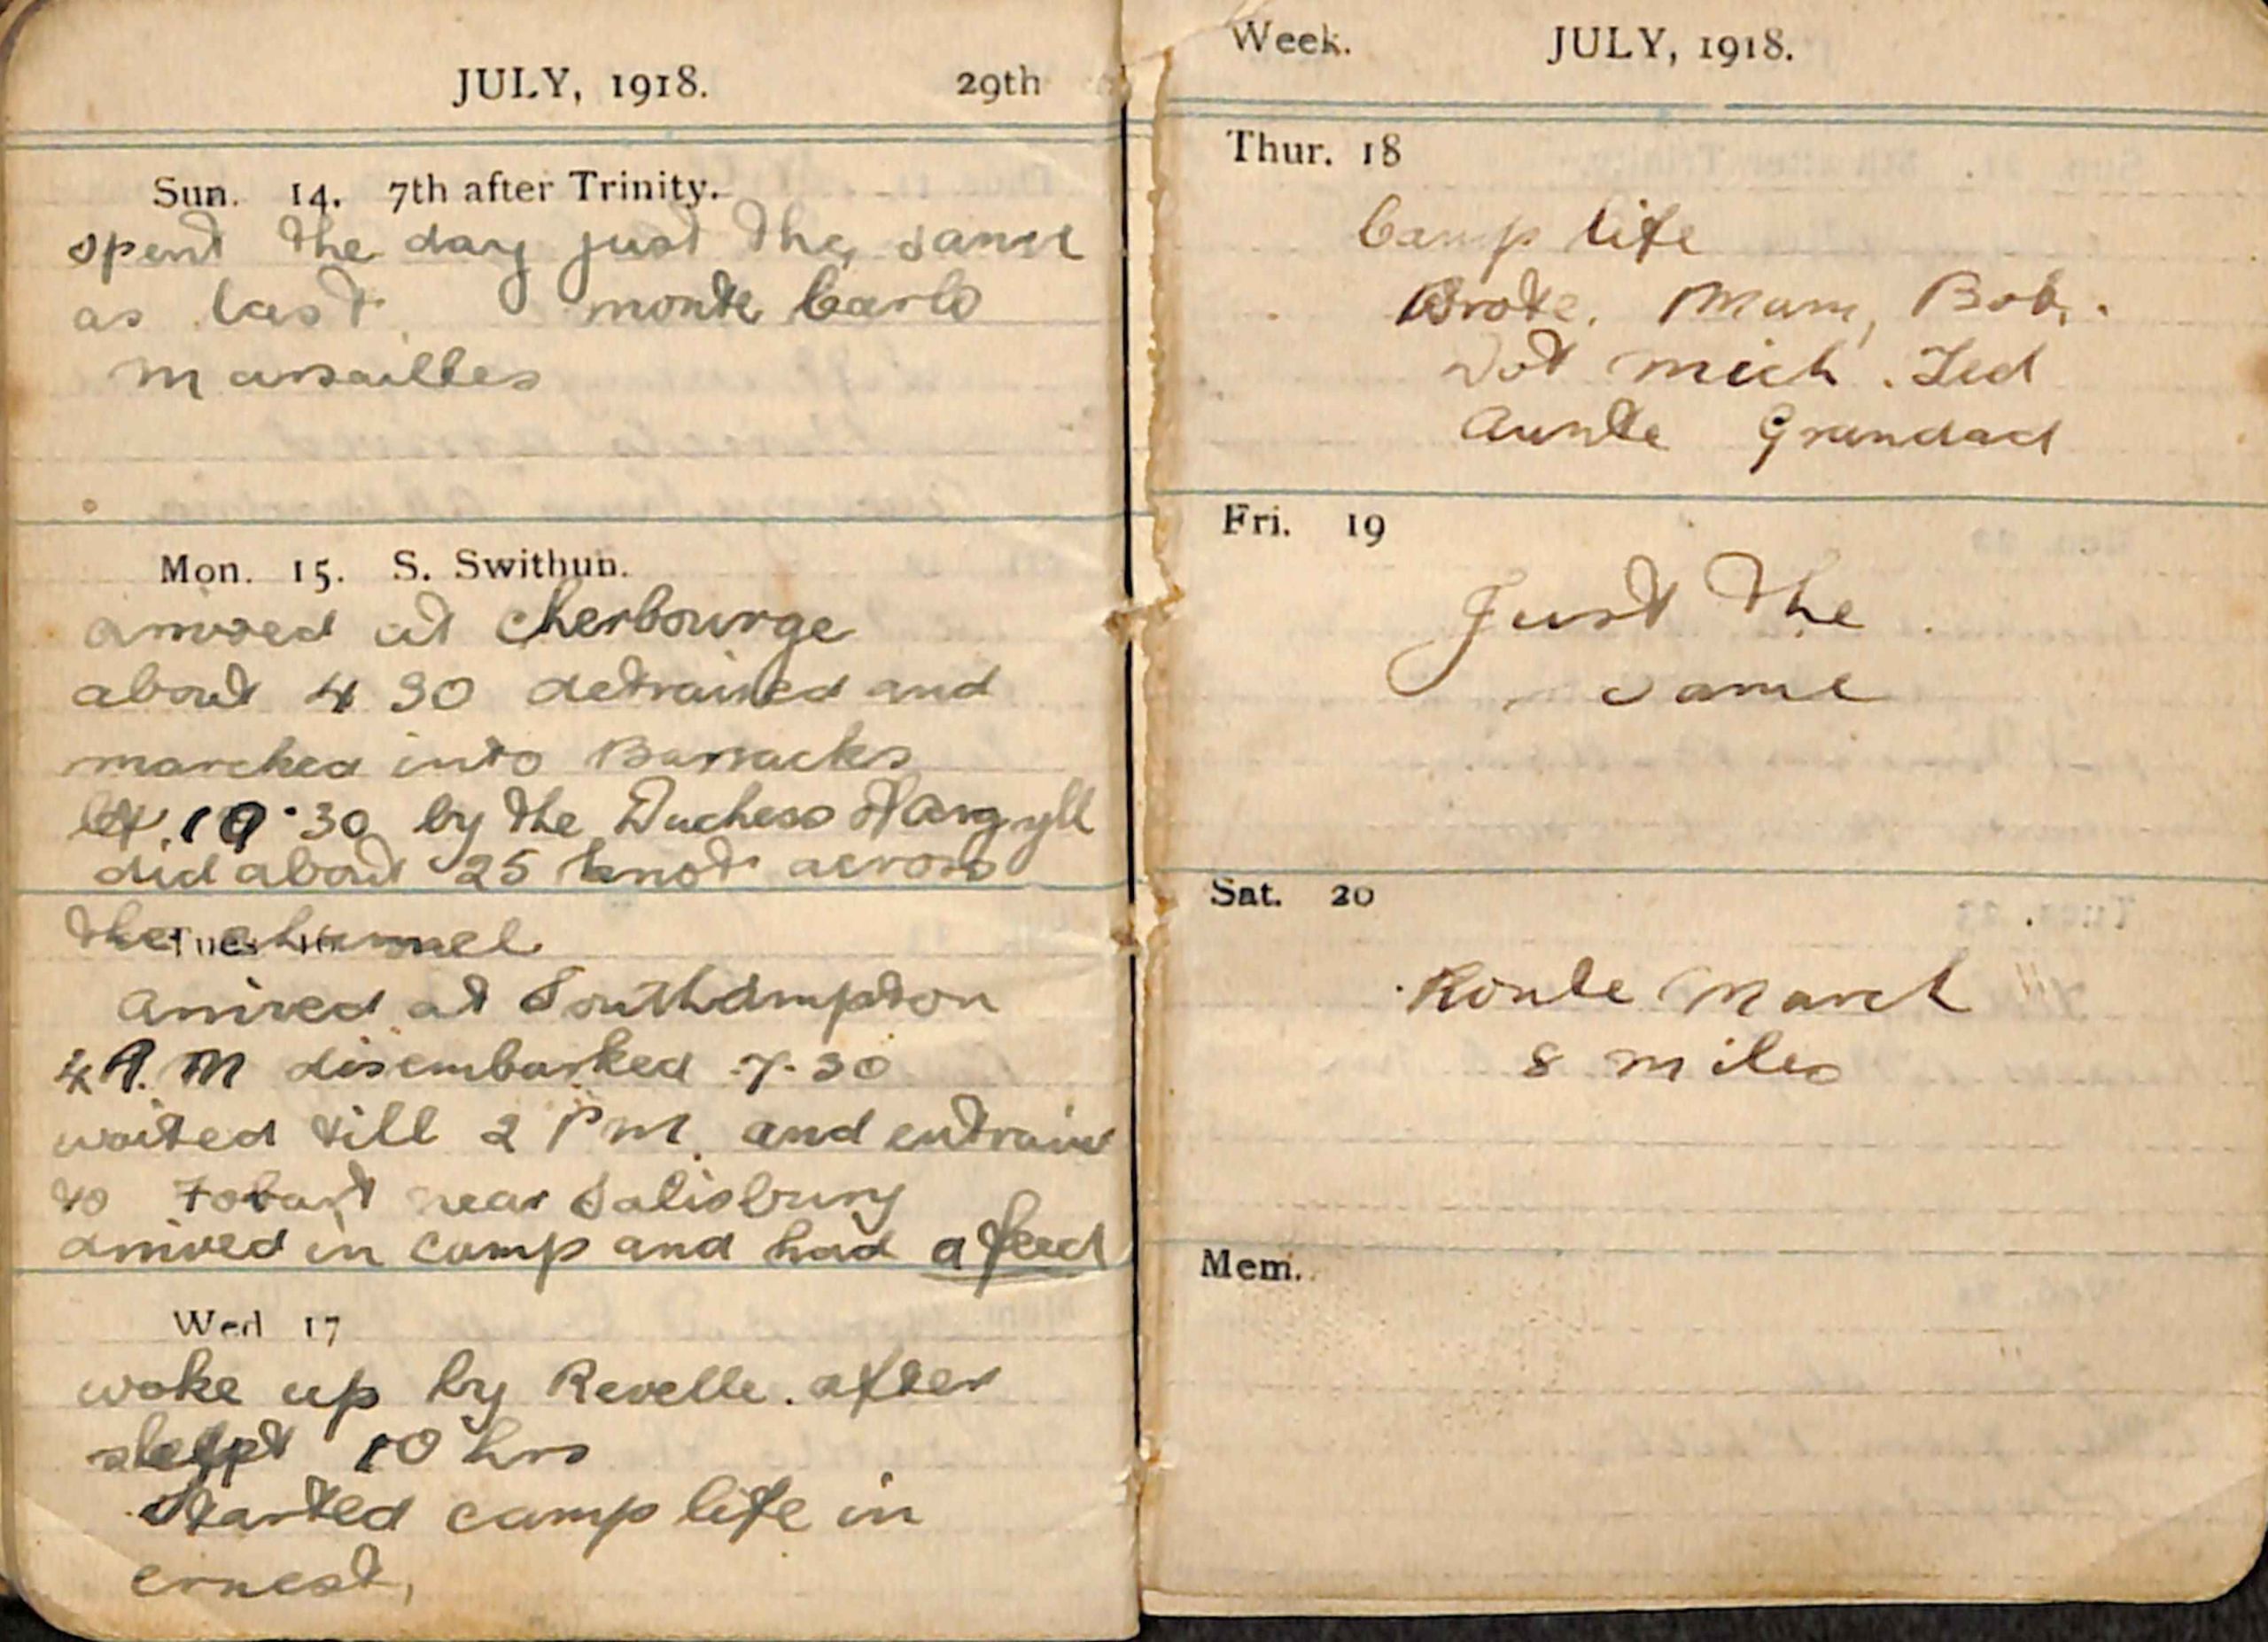 JULY, 1918. 29th
Sun. 14. 7th after Trinity.
spent the day just the same
as last monte Carlo
Marsailles
Mon. 15. S. Swithun.
arrived at Cherbourge
about 4 30 detrained and
marched into Barracks
left 10.30 by the Duchess of Argyll
did about 25 knots across
the channel
Tues 16
Arrived at Southampton
4 A.M disembarked 7.30
waited till 2 PM. and entrain
to Fobant near Salisbury
arrived in camp and had a feed
Wed 17
woke up by Revelle. after
10 hrs
Started camp life in
ernest,
Week. JULY, 1918.
Thur. 18
Camp life
Wrote. Mam, Bob.
Dot Mich. Ted
Aunte Grandad
Fri. 19
Just the
same
Sat. 20
Route March
8 miles
Mem.